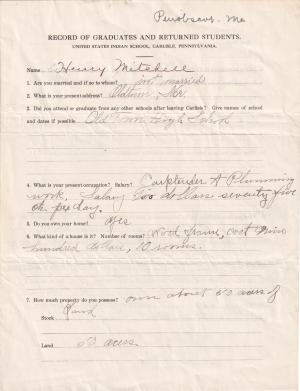 Penobscot, Me
RECORD OF GRADUATES AND RETURNED STUDENTS.
UNITED STATES INDIAN SCHOOL, CARLISLE, PENNSYLVANIA.
Name Henry Mitchell
1. Are you married and if so to whom? not married
2. What is your present address? Oldtown, Me.
3. Did you attend or graduate from any other schools after leaving Carlisle? Give names of school
and dates if possible Old Town High School
4. What is your present occupation? Salary? Carpenter & Plumming
work, Salary two dollars seventy five
cts. per day.
5. Do you own your home? yes
6. What kind of a house is it? Number of rooms? wood frame, cost nine
hundred dollars, 10 rooms.
7. How much property do you possess? own about 50 acres of
Stock land
Land 50 acres